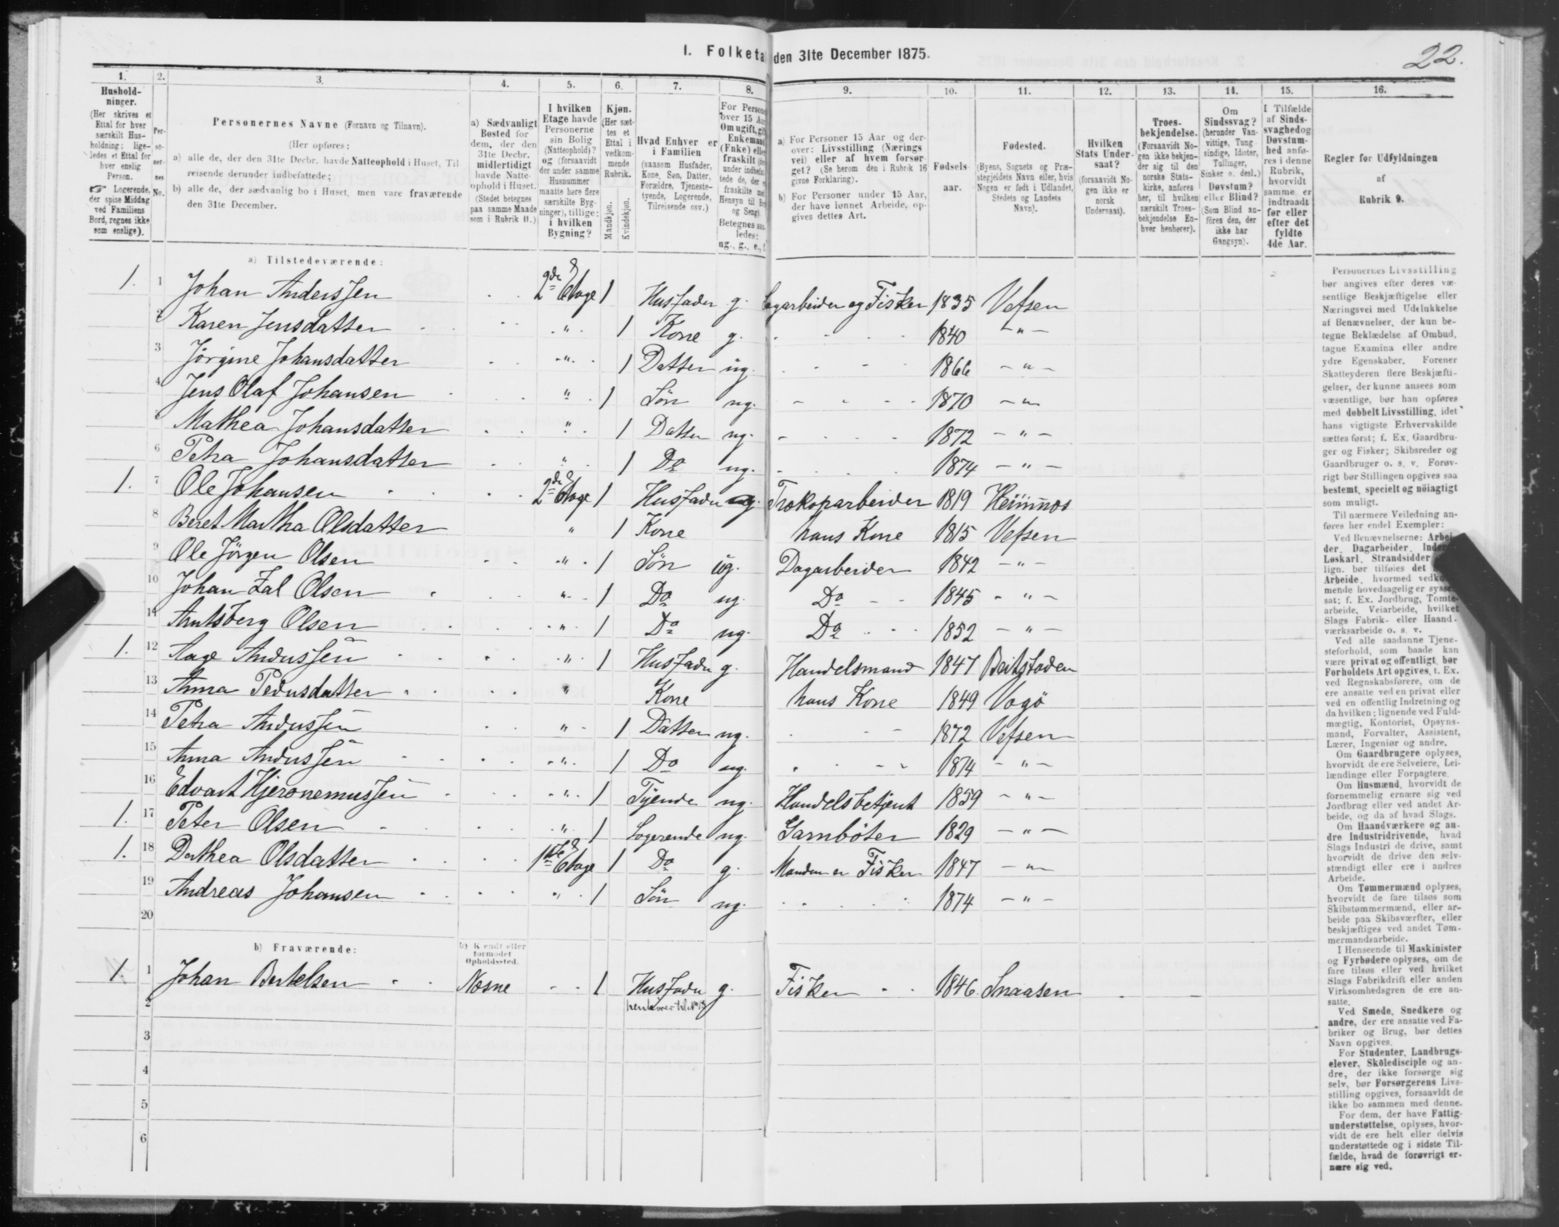 I. Folketa den 31te December 1875.
22.
1. 2. 3. 4. 5. 6. 7. 8. 9. 10. 11. 12. 13. 14. 15. 16.
Hushold-
ninger.
(Her skrives et
Ettal for hver
særskilt Hus-
holdning; lige-
ledes et Ettal for
hver enslig
Person.
☞ Logerende,
der spise Middag
ved Familiens
Bord, regnes ikke
som enslige).
Per-
so-
ner-
nes
No.
Personernes Navne (Fornavn og Tilnavn).
(Her opføres:
a) alle de, der den 31te Decbr. havde Natteophold i Huset, Til-
reisende derunder indbefattede;
b) alle de, der sædvanlig bo i Huset, men vare fraværende
den 31te December.
a) Sædvanligt
Bosted for
dem, der den
31te Decbr.
midlertidigt
havde Natte-
ophold i Huset.
(Stedet betegnes
paa samme Maade
som i Rubrik 11.)
I hvilken
Etage havde
Personerne
sin Bolig
(Natteophold)?
og (forsaavidt
der under samme
Husnummer
maatte høre flere
særskilte Byg-
ninger), tillige:
i hvilken
Bygning?
Kjøn.
(Her sæt-
tes et
Ettal i
vedkom-
mende
Rubrik.
Mandkjøn.
Kvindekjøn.
Hvad Enhver er
i Familien
(saasom Husfader,
Kone, Søn, Datter,
Forældre, Tjeneste-
tyende, Logerende,
Tilreisende osv.)
For Persone
over 15 Aar
Om ugift, gift
Enkemand
(Enke) eller
fraskilt
Betegnes saa-
ledes:
ug., g., e., f.
a) For Personer 15 Aar og der-
over: Livsstilling (Nærings-
vei) eller af hvem forsør-
get? (Se herom den i Rubrik 16
givne Forklaring).
b) For Personer under 15 Aar,
der have lønnet Arbeide, op-
gives dettes Art.
Fødsels-
aar.
Fødested.
(Byens, Sognets og Præ-
stegjeldets Navn eller, hvis
Nogen er født i Udlandet,
Stedets og Landets
Navn).
Hvilken
Stats Under-
saat?
(forsaavidt No-
gen ikke er
norsk
Undersaat).
Troes-
bekjendelse.
(Forsaavidt No-
gen ikke bekjen-
der sig til den
norske Stats-
kirke, anføres
her, til hvilken
særskilt Troes-
bekjendelse En-
hver henhører).
Om
Sindssvag?
(herunder Van-
vittige, Tung-
sindige, Idioter,
Tullinger,
Sinker o. desl.)
Døvstum?
eller Blind?
(Som Blind an-
føres den, der
ikke har
Gangsyn).
I Tilfælde
af Sinds-
svaghed og
Døvstum-
hed anfø-
res i denne
Rubrik,
hvorvidt
samme er
indtraadt
før eller
efter det
fyldte
4de Aar.
Regler for Udfyldningen
af
Rubrik 9.
a) Tilstedeværende:
1. 1 Johan Anderssen 2den Etage 1 Husfader g. Dagarbeider og Fisker 1835 Vefsen
2 Karen Jensdatter " 1 Kone g. 1840 - " -
3 Jørgine Johansdatter " 1 Datter ug. 1866 - " -
4 Jens Olaf Johansen " 1 Søn ug. 1870 - " -
5 Mathea Johansdatter " 1 Datter ug. 1872 - " -
6 Petra Johansdatter " 1 Do ug. 1874 - " -
1. 7 Ole Johansen 2den Etage 1 Husfader 1819
8 Beret Martha Olsdatter " 1 Kone hans Kone 1815 Vefsen
9 Ole Jørgen Olsen " 1 Søn ug. Dagarbeider 1842 - " -
10 Johan Olsen " 1 Do ug. Do 1845 - " -
11 Amtsberg Olsen " 1 Do ug. Do 1852 - " -
1. 12 Aage Anderssen " 1 Husfader g. Handelsmand 1847 Beitstaden
13 Anna Pedersdatter " Kone hans Kone 1849 Vogø
14 Petra Anderssen " 1 Datter ug. 1872 Vefsen
15 Anna Anderssen " 1 Do ug. 1874 - " -
16 Edvart Hjeronemussen " 1 Tjende ug. Handelsbetjent 1859 - " -
1. 17 Peter Olsen " 1 Logerende ug. Garnbøter 1829 - " -
1. 18 Dorthea Olsdatter 1ste Etage 1 Do g. Manden er Fisker 1847 - " -
19 Andreas Johansen " 1 Søn ug. 1874 - " -
20
b) Fraværende:
b) Kendt eller
formodet
Opholdssted.
1. 1 Johan Bertelsen Næsne 1 Husfader g. Fisker 1846 Snaasen
2
3
4
5
6
Personernes Livsstilling
bør angives efter deres væ-
sentlige Beskjæftigelse eller
Næringsvei med Udelukkelse
af Benævnelser, der kun be-
tegne Beklædelse af Ombud,
tagne Examina eller andre
ydre Egenskaber. Forener
Skatteyderen flere Beskjæfti-
gelser, der kunne ansees som
væsentlige, bør han opføres
med dobbelt Livsstilling, idet
hans vigtigste Erhvervskilde
sættes først; f. Ex. Gaardbru-
ger og Fisker; Skibsreder og
Gaardbruger o. s. v. Forøv-
rigt bør Stillingen opgives saa
bestemt, specielt og nøiagtigt
som muligt.
Til nærmere Veiledning an-
føres her endel Exempler:
Ved Benævnelserne: Arbei-
der, Dagarbeider,
Løskarl, Strandsidder
lign. bør tilføies det
Arbeide, hvormed
mende hovedsagelig er
sat; f. Ex. Jordbrug, Tomte-
arbeide, Veiarbeide, hvilket
Slags Fabrik- eller Haand-
værksarbeide o. s. v.
Ved alle saadanne Tjene-
steforhold, som baade kan
være privat og offentligt, bør
Forholdets Art opgives, f. Ex.
ved Regnskabsførere, om de
ere ansatte ved en privat eller
ved en offentlig Indretning og
da hvilken; lignende ved Fuld-
mægtig, Kontorist, Opsyns-
mand, Forvalter, Assistent,
Lærer, Ingeniør og andre.
Om Gaardbrugere oplyses,
hvorvidt de ere Selveiere, Lei-
lændinge eller Forpagtere.
Om Husmænd, hvorvidt de
fornemmelig ernære sig ved
Jordbrug eller ved andet Ar-
beide, og da af hvad Slags.
Om Haandværkere og an-
dre Industridrivende, hvad
Slags Industri de drive, samt
hvorvidt de drive den selv-
stændigt eller ere i andres
Arbeide.
Om Tømmermænd oplyses,
hvorvidt de fare tilsøs som
Skibstømmermænd, eller ar-
beide paa Skibsværfter, eller
beskjæftiges ved andet Tøm-
mermandsarbeide.
I Henseende til Maskinister
og Fyrbødere oplyses, om de
fare tilsøs eller ved hvilket
Slags Fabrikdrift eller anden
Virksomhedsgren de ere an-
satte.
Ved Smede, Snedkere og
andre, der ere ansatte ved Fa-
briker og Brug, bør dettes
Navn opgives.
For Studenter, Landbrugs-
elever, Skoledisciple og an-
dre, der ikke forsørge sig
selv, bør Forsørgerens Livs-
stilling opgives, forsaavidt de
ikke bo sammen med denne.
For dem, der have Fattig-
understøttelse, oplyses, hvor-
vidt de ere helt eller delvis
understøttede og i sidste Til-
fælde, hvad de forøvrigt er-
nære sig ved.